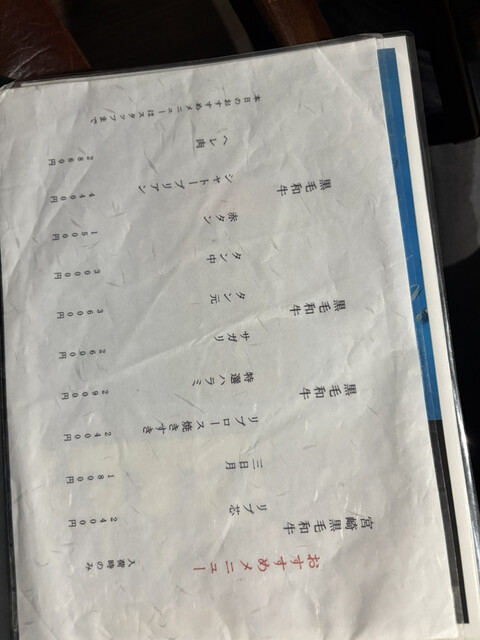 おすすめメニュー
入荷時のみ
宮崎黒毛和牛
リブ芯
2400円
三日月
1800円
リブロース焼きすき
2400円
黒毛和牛
特選ハラミ
2900円
サガリ
2600円
黒毛和牛
タン元
3600円
タン中
3000円
赤タン
1500円
黒毛和牛
シャトーブリアン
4400円
ヘレ肉
2860円
本日のおすすめメニューはスタッフまで